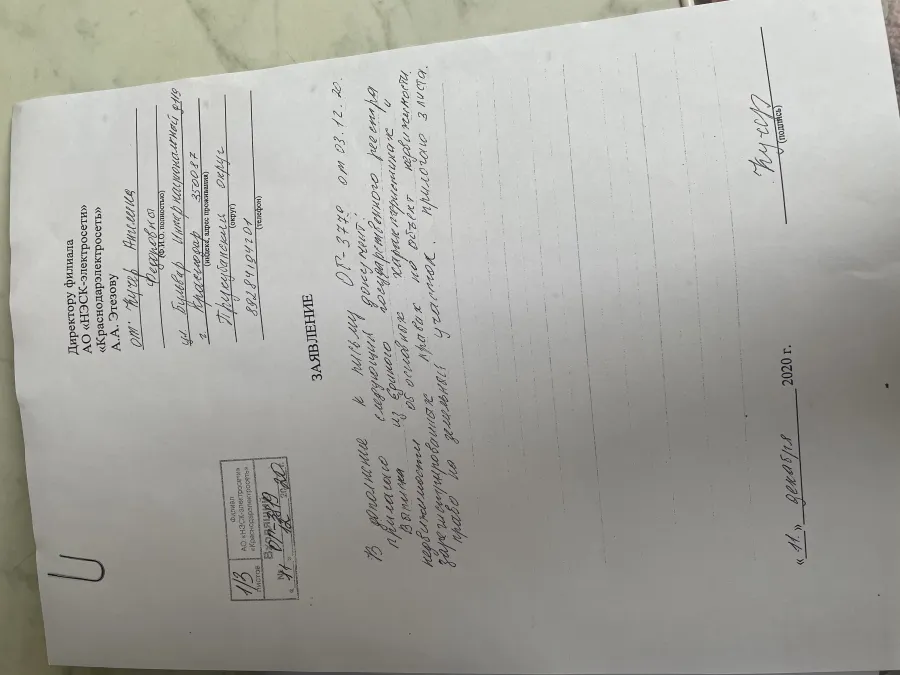 Директору филиала
АО «НЭСК-электросети»
«Краснодарэлектросеть»
А.А. Этезову
от Кучер Ангелина
Федоровны
(Ф.И.О. полностью)
ул. Бульвар Интернациональный
г. Краснодар 350087
(индекс, адрес проживания)
Прикубанский округ
(округ)
89284194201
(телефон)
1/3
листов
Филиал
АО «НЭСК-электросети»
«Краснодарэлектросеть»
Входящий
№
« 11 » 12 2020
ЗАЯВЛЕНИЕ
В дополнение к письму ОГ-3770 от 03.12.20.
прилагаю следующий документ:
Выписка из Единого государственного реестра
недвижимости об основных характеристиках и
зарегистрированных правах на объект недвижимости,
право на земельный участок. прилогаю 3 листа.
« 11 » декабря 2020 г.
Кучер
(подпись)